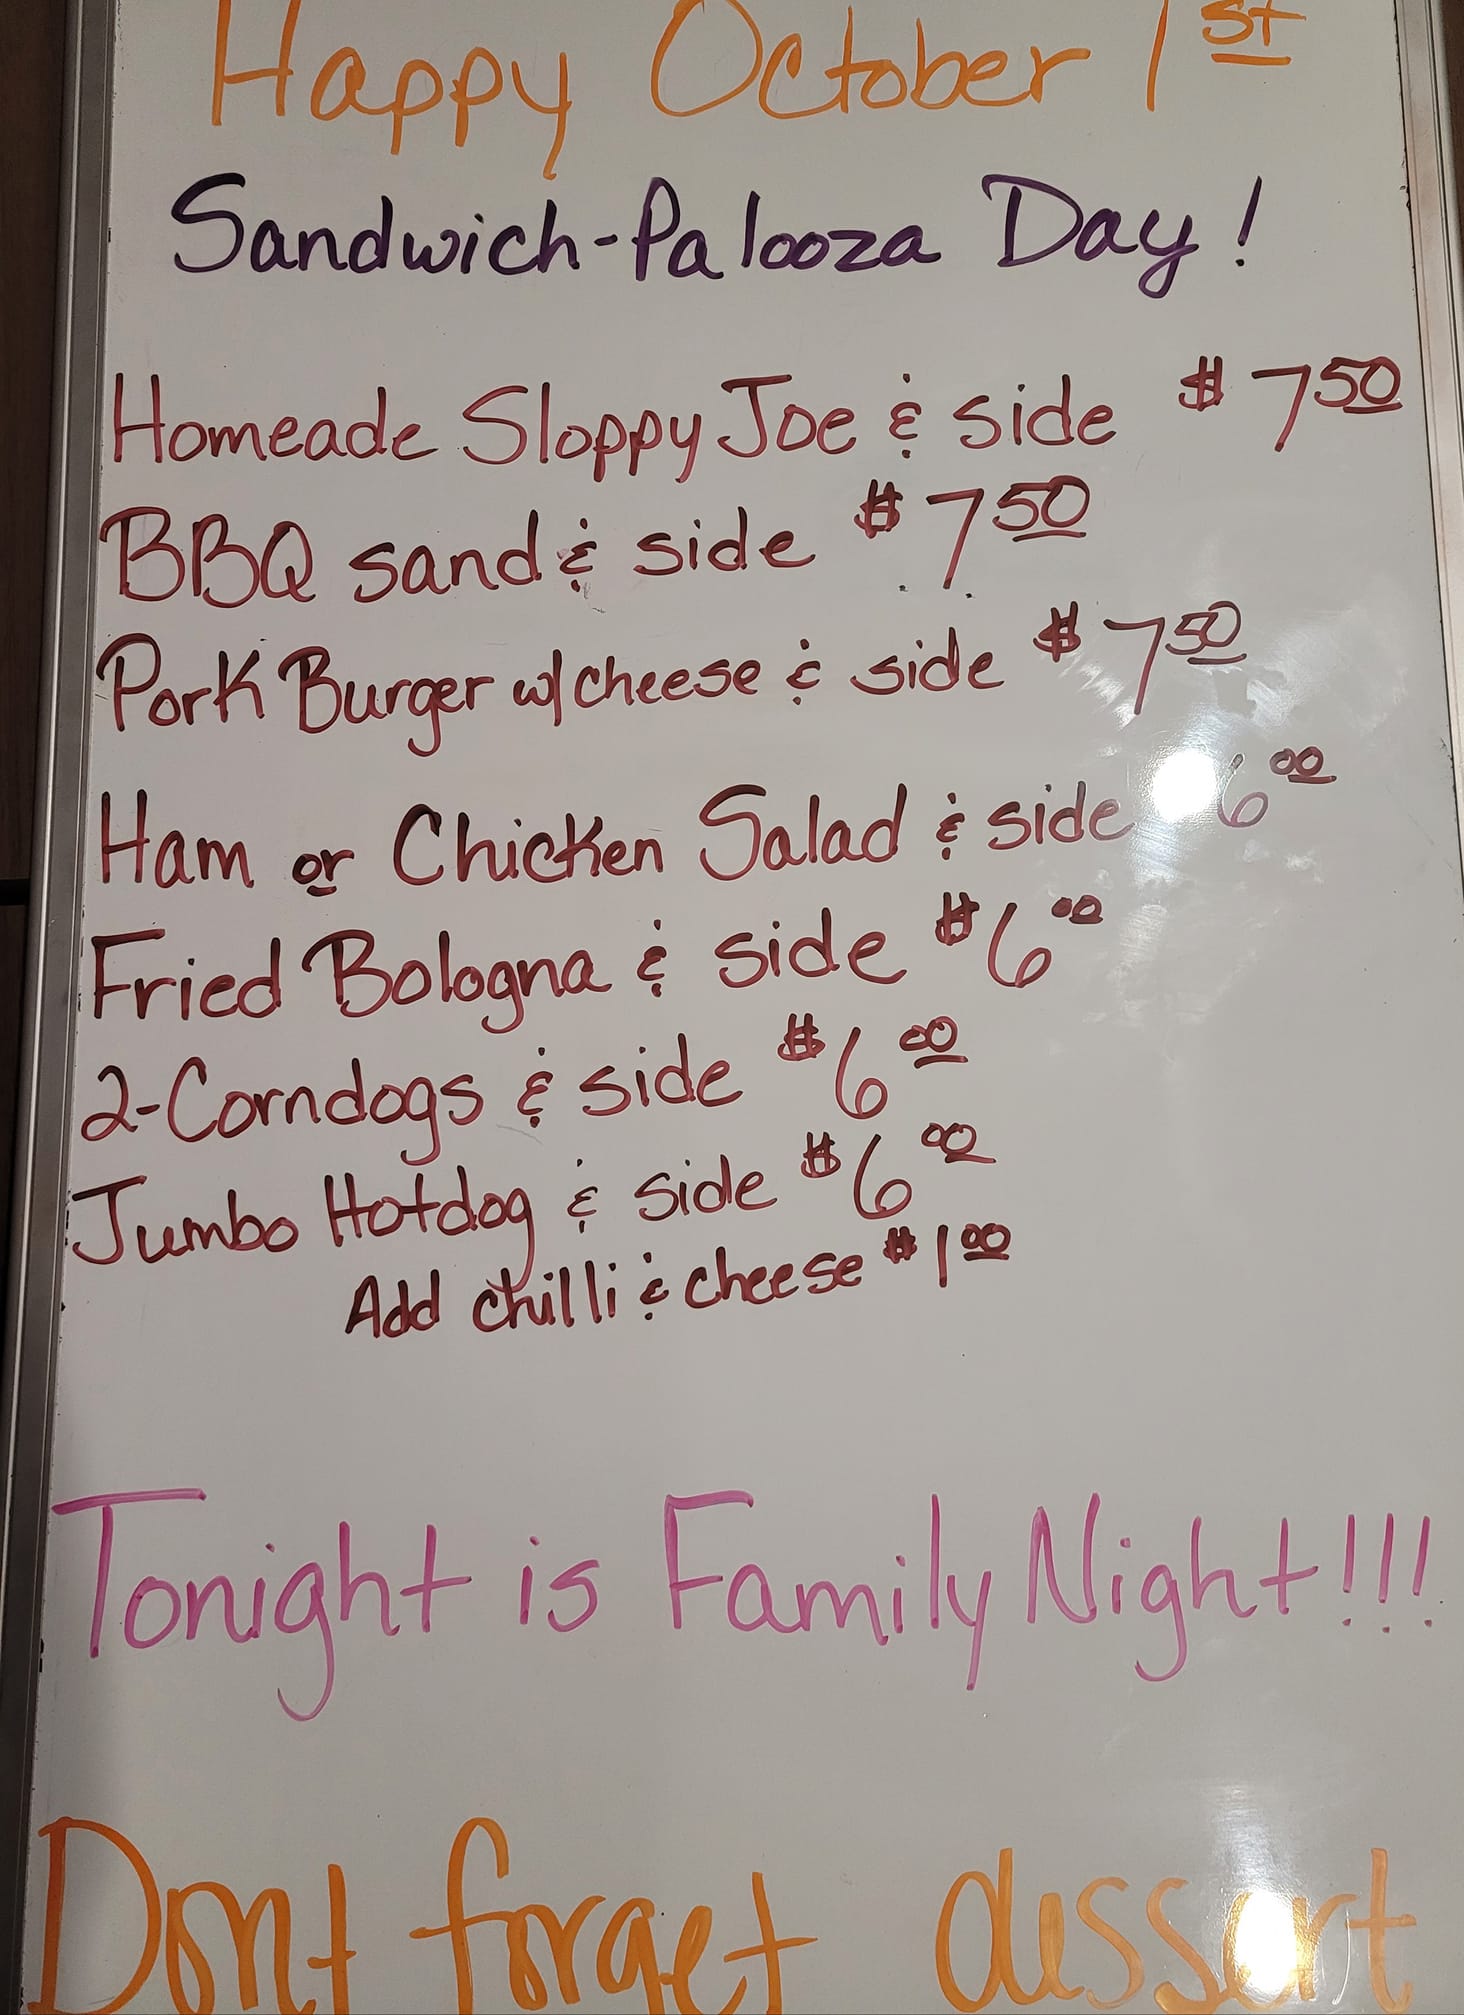 Happy October 1st
Sandwich-Palooza Day!
Homeade Sloppy Joe & side $7.50
BBQ sand & side $7.50
Pork Burger w/cheese & side $7.50
Ham or Chicken Salad & side 6.00
Fried Bologna & side $6.00
2-Corndogs & side $6.00
Jumbo Hotdog & side $6.00
Add chilli & cheese $1.00
Tonight is Family Night!!!
Dont forget dessert